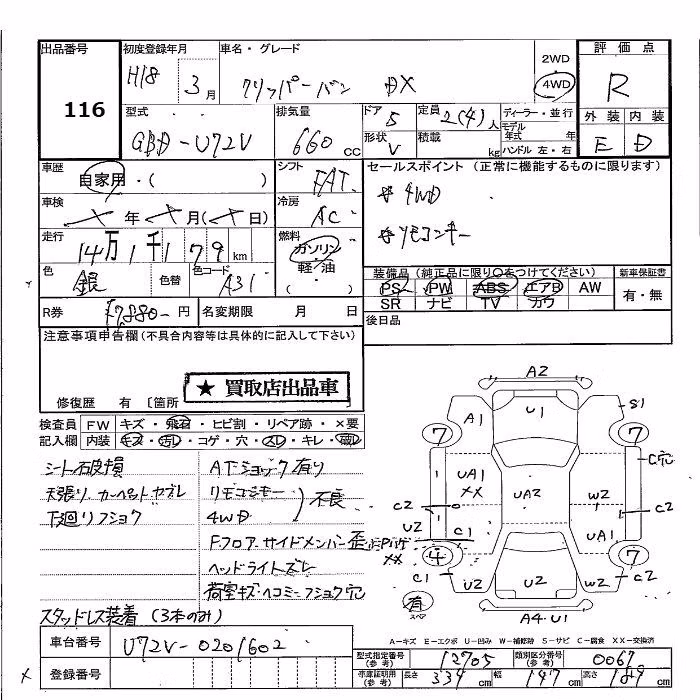 出品番号
116
初度登録年月
H18 3月
車名・グレード
クリッパーバン DX
2WD
4WD
評価点
R
外装 内装
E D
型式
GBD-U72V
排気量
660 CC
ドア 5
形状 V
定員 2(4)人
積載 kg
ディーラー・並行
モデル
年式 年
ハンドル 左・右
車歴
自家用・( )
車検
年 月( 日)
走行
14万1千179km
色
銀
色替
色コード
A31
シフト
FAT
冷房
AC
燃料
ガソリン
軽油
( )
セールスポイント (正常に機能するものに限ります)
4WD
リモコンキー
装備品 (純正品に限り○をつけてください)
PS PW ABS エアB AW
SR ナビ TV カワ
新車保証書
有・無
R券
¥7880- 円
名変期限 月 日
後日品
注意事項申告欄(不具合内容等は具体的に記入して下さい)
★ 買取店出品車
修復歴 有 [箇所
検査員
記入欄
FW キズ・飛石・ヒビ割・リペア跡・×要
内装 キズ・汚レ・コゲ・穴・スレ・キレ・
シート破損
天張り カーペットヤブレ
下廻りフショク
ATショック有り
リモコンキー
4WD
不良
F.フロア サイドメンバー歪
ヘッドライトズレ
荷室キズ・ヘコミ・フショク穴
スタッドレス装着 (3本のみ)
A2
A1 U1 S1
7 7
C穴
UA1
XX
UA2
W2
C2 C2
U2
C1 UA1
XX
4 7
C1 U2 U2 W2 C2
有
スペア
A4・U1
A-キズ E-エクボ U-凹み W-補修跡 S-サビ C-腐食 XX-交換済
車台番号
U72V-0201602
登録番号
型式指定番号
(参考)
12705
類別区分番号
(参考)
0067
車庫証明用
(参考)
長さ 334cm 幅 147cm 高さ 189cm